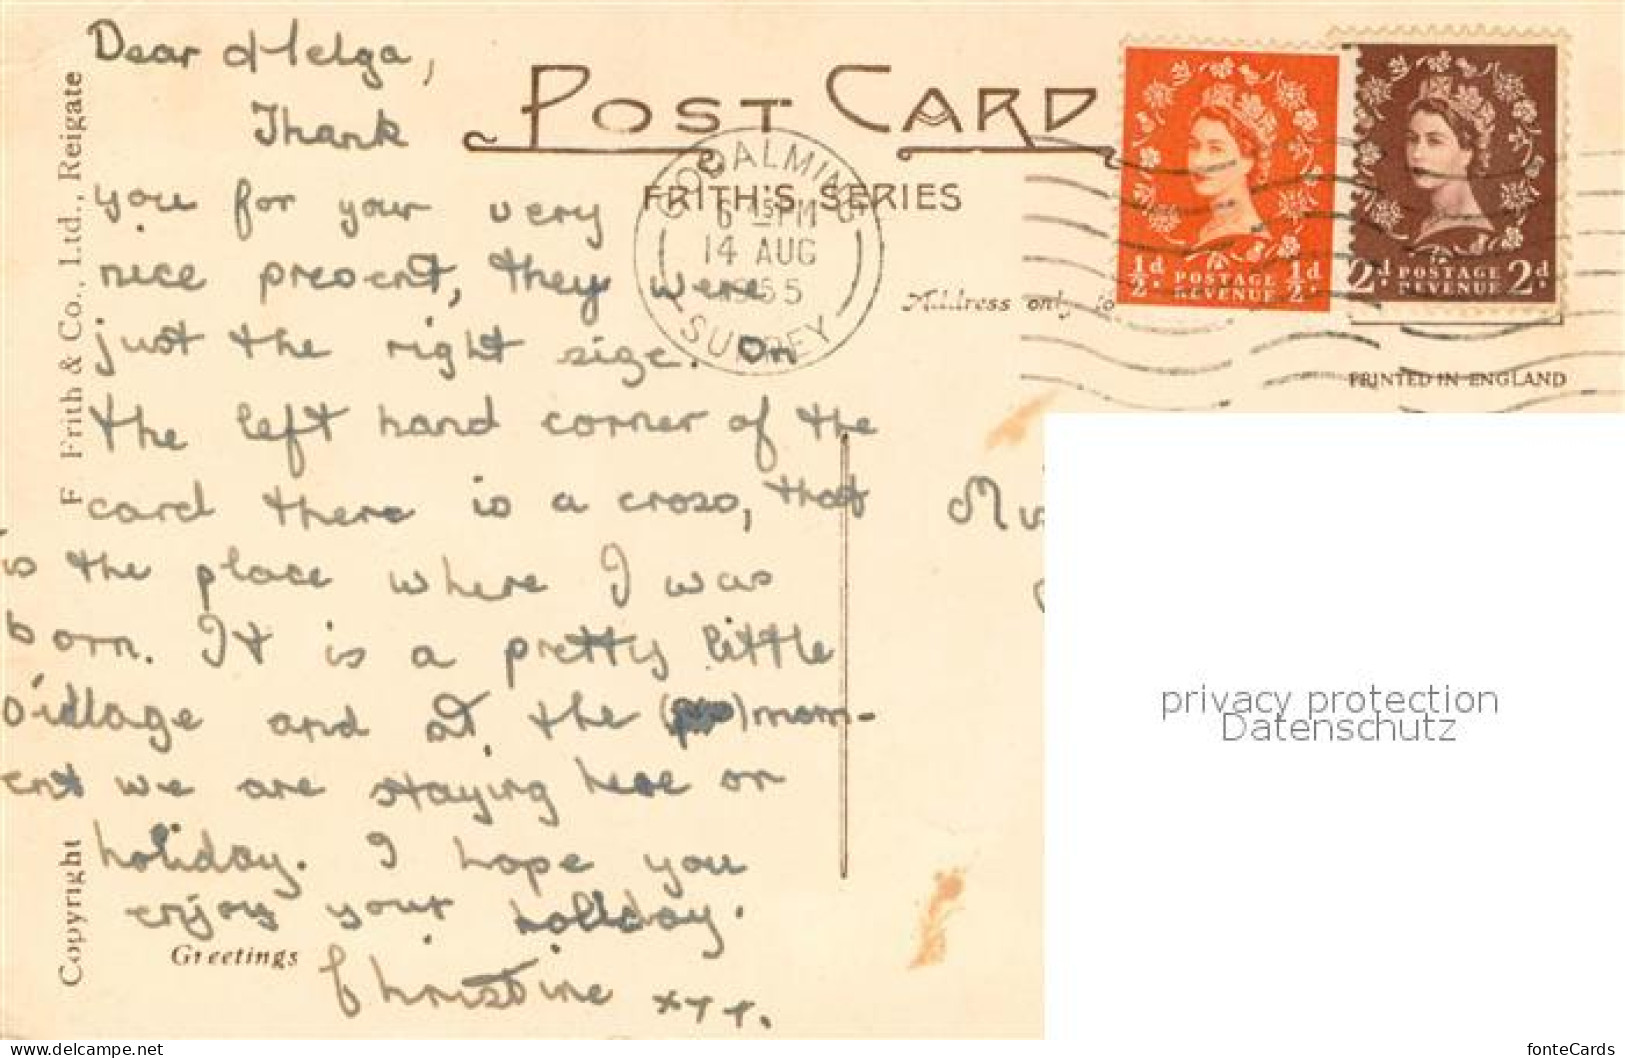 Dear Helga,
Thank
you for your very
nice present, they were
just the right size. On
the left hand corner of the
card there is a cross, that
is the place where I was
born. It is a pretty little
village and at the mom-
ent we are staying here on
holiday. I hope you
enjoy your holiday.
Christine xxx.
Greetings
Copyright F Frith & Co., Ltd., Reigate
POST CARD
FRITH'S SERIES
GODALMING
6 15 PM
14 AUG
1955
SURREY
Address only to
½d. POSTAGE REVENUE ½d.
2d. POSTAGE REVENUE 2d.
PRINTED IN ENGLAND
privacy protection
Datenschutz
Your Marketplace for Collectors
fonteCards